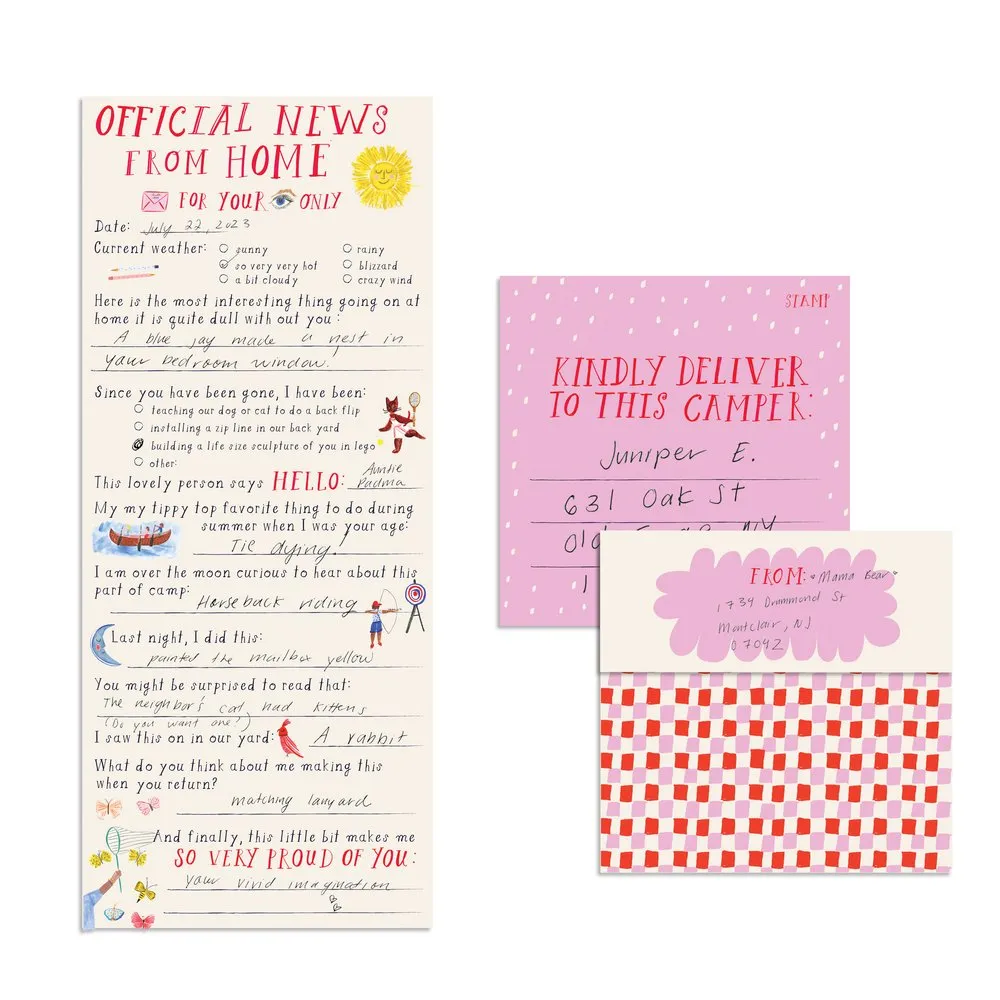 OFFICIAL NEWS
FROM HOME
FOR YOUR ONLY
Date: July 22, 2023
Current weather:
sunny
so very very hot
a bit cloudy
rainy
blizzard
crazy wind
Here is the most interesting thing going on at
home it is quite dull with out you:
A blue jay made a nest in
your bedroom window!
Since you have been gone, I have been:
teaching our dog or cat to do a back flip
installing a zip line in our back yard
building a life size sculpture of you in lego
other:
This lovely person says HELLO: Auntie
Padma
My my tippy top favorite thing to do during
summer when I was your age:
Tie dying!
I am over the moon curious to hear about this
part of camp:
Horseback riding
Last night, I did this:
painted the mailbox yellow
You might be surprised to read that:
The neighbor's cat had kittens
(Do you want one?)
I saw this on in our yard: A rabbit
What do you think about me making this
when you return?
matching lanyard
And finally, this little bit makes me
SO VERY PROUD OF YOU:
your vivid imagination
STAMP
KINDLY DELIVER
TO THIS CAMPER:
Juniper E.
631 Oak St
FROM: Mama Bear
1734 Drummond St
Montclair, NJ
07042